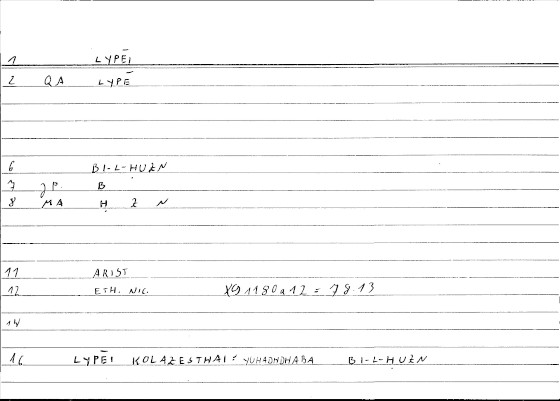 1 LYPĒI
2 QA LYPĒ
6 BI-L-ḤUZN
7 JP. B
8 MA Ḥ Z N
11 ARIST
12 ETH. NIC. X9 1180a12 = 78.13
14
16 LYPĒI KOLAZESTHAI = YUHADHDHABA BI-L-ḤUZN